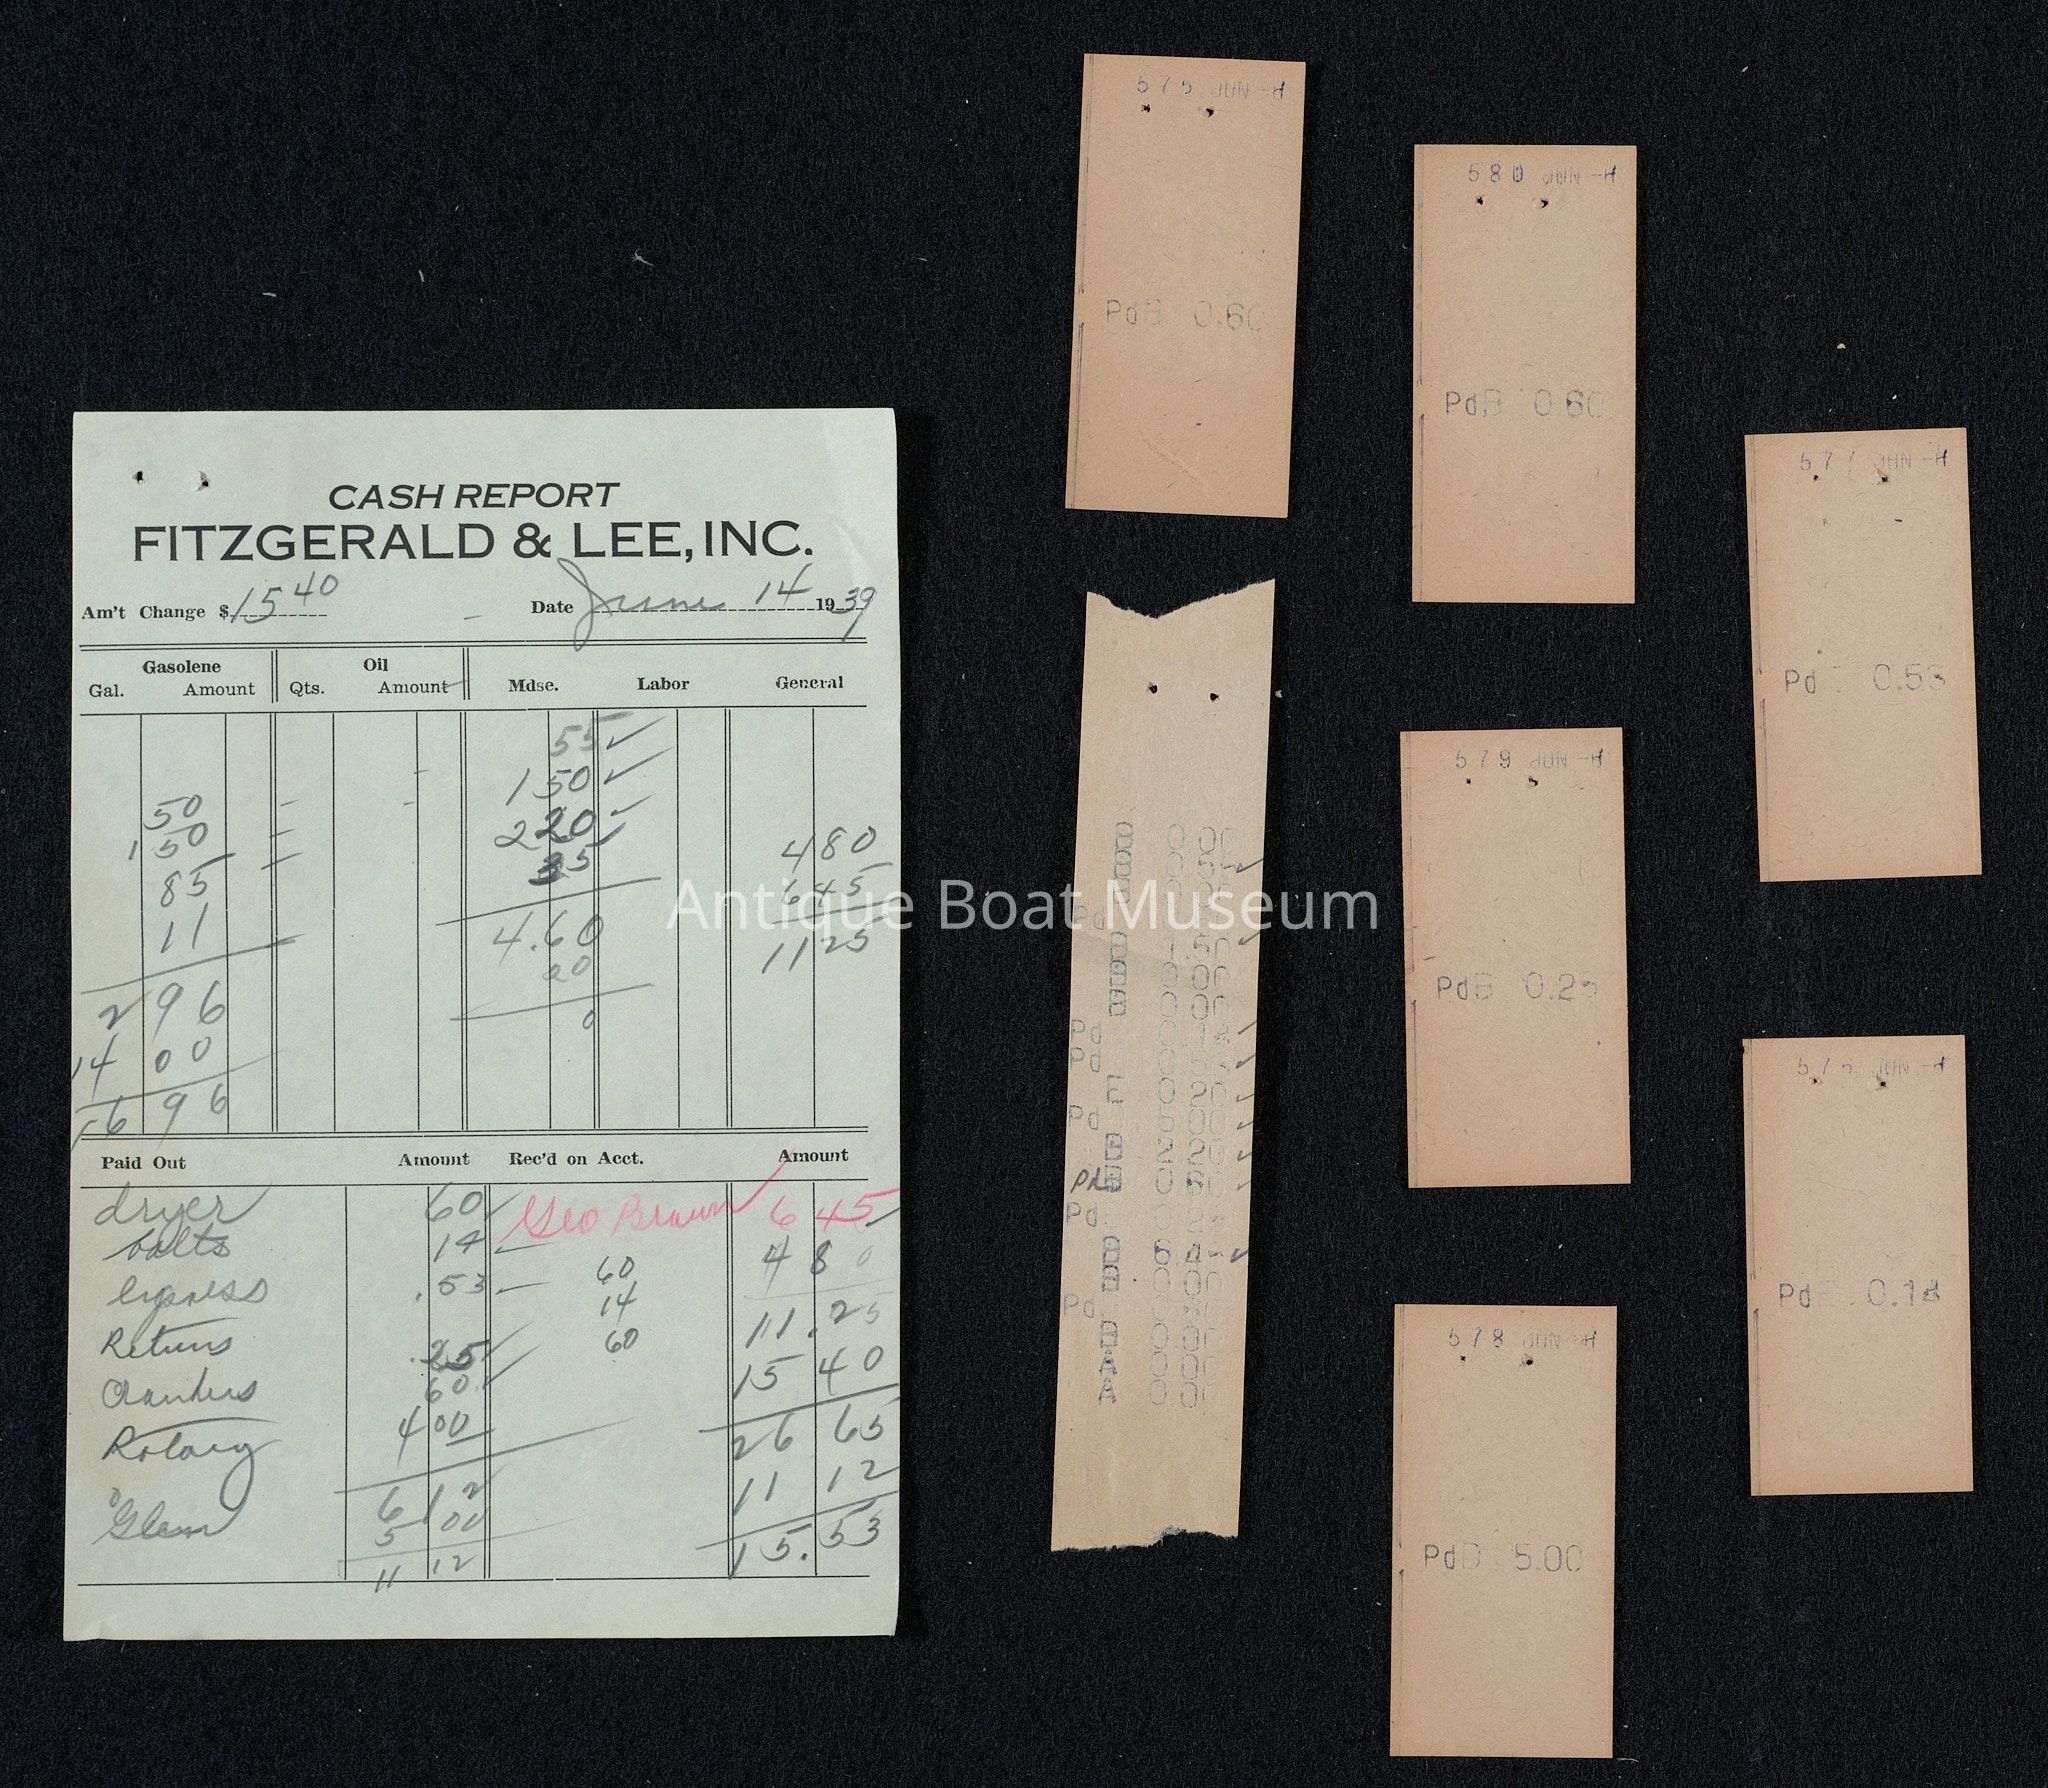 CASH REPORT
FITZGERALD & LEE, INC.
Am't Change $ 15 40 Date June 14 1939
Gasolene Oil
Gal. Amount Qts. Amount Mdse. Labor General
55
1 50
50 2 20 4 80
1 50 35 6 45
85 4.60 11 25
11 20
2 96 0
14 00
16 96
Paid Out Amount Rec'd on Acct. Amount
dryer 60 Geo Brown 6 45
bolts 14 60 4 80
Express .53 14 11.25
Returns .25 60 15 40
60
Rotary 4 00 26 65
6 12 11 12
Glenn 5 00 15.53
11 12
575 JUN -H
Pd 0.60
580 JUN -H
PdB 0.60
577 JUN -H
Pd 0.53
579 JUN -H
PdB 0.25
JUN -H
Pd 0.14
578 JUN -H
Pd 5.00
B 0.00
Pd
1.50
0.00
0.00
Pd
Pd
0.20
Pd 5.00
B 2.20
Pd
Pd
B 6.45
B 0.00
Pd
B 0.00
A 0.00
A 0.00
Antique Boat Museum